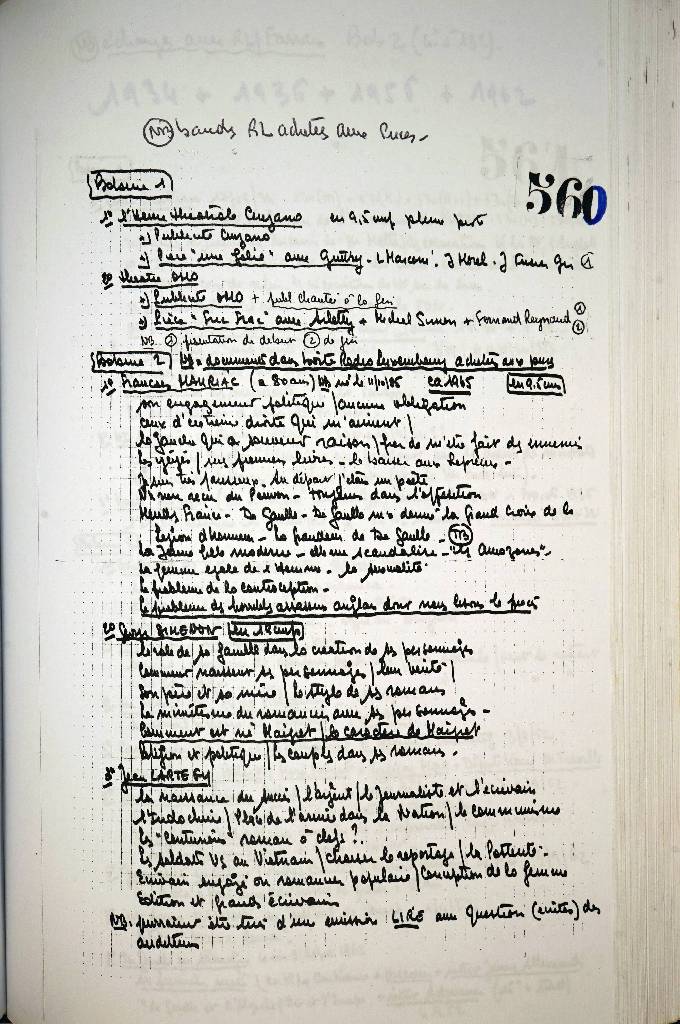 NB bandes RL achetées aux Puces -
560
Bobine 1
1° L'Heure théâtrale Cinzano en 9,5 cm/s pleine piste
a) Publicité Cinzano
b) Pièce "une folie" avec Guitry - L Marconi. J Morel. J ①
2° théâtre OMO
a) Publicité OMO + publ chantée à la fin
b) Pièce "Fric Frac" avec Arletty + Michel Simon + Fernand Raynaud ① ②
NB ① présentation de début ② de fin
Bobine 2 NB = documents dans boite Radio Luxembourg achetés aux puces
1° François MAURIAC (a 80 ans) NB né le 11/10/85 ca 1965 en 9.5 cm/s
son engagement politique / aucune obligation
ceux d'extrême droite qui m'aiment /
la gauche qui a souvent raison / peur de m'être fait des ennemis
les yéyés / ses premiers livres - le baiser aux lépreux -
Je suis très paresseux. Au départ j'étais un poète
toujours dans l'opposition
Mendès France - De Gaulle - De Gaulle m'a donné la Grand Croix de la
Légion d'honneur - la grandeur de De Gaulle - TB
La Jeune fille moderne - elle me scandalise - "les Amazones" -
La femme égale de l'Homme - la sexualité -
Le problème de la contraception -
Le problème des horribles assassins anglais dont nous lisons le procès
2° Georges SIMENON en 19 cm/s
le rôle de sa famille dans la création de ses personnages
Comment naissent ses personnages / leur vérité /
Son père et sa mère / le style de ses romans
Le mimétisme du romancier avec ses personnages -
Comment est né Maigret / le caractère de Maigret
Religion et politique / les couples dans ses romans -
3° Jean LARTEGUY
la naissance du succès / l'argent / le Journaliste et l'écrivain
l'Indochine / Place de l'armée dans la Nation / le communisme
Les "Centurions" roman à clefs ?.
Les soldats US au Vietnam / choisir le reportage /
Ecrivain engagé ou romancier populaire / Conception de la femme
Edition et grands écrivains
NB. pourraient être tirés d'une émission LIRE aux question (écrites) des
auditeurs